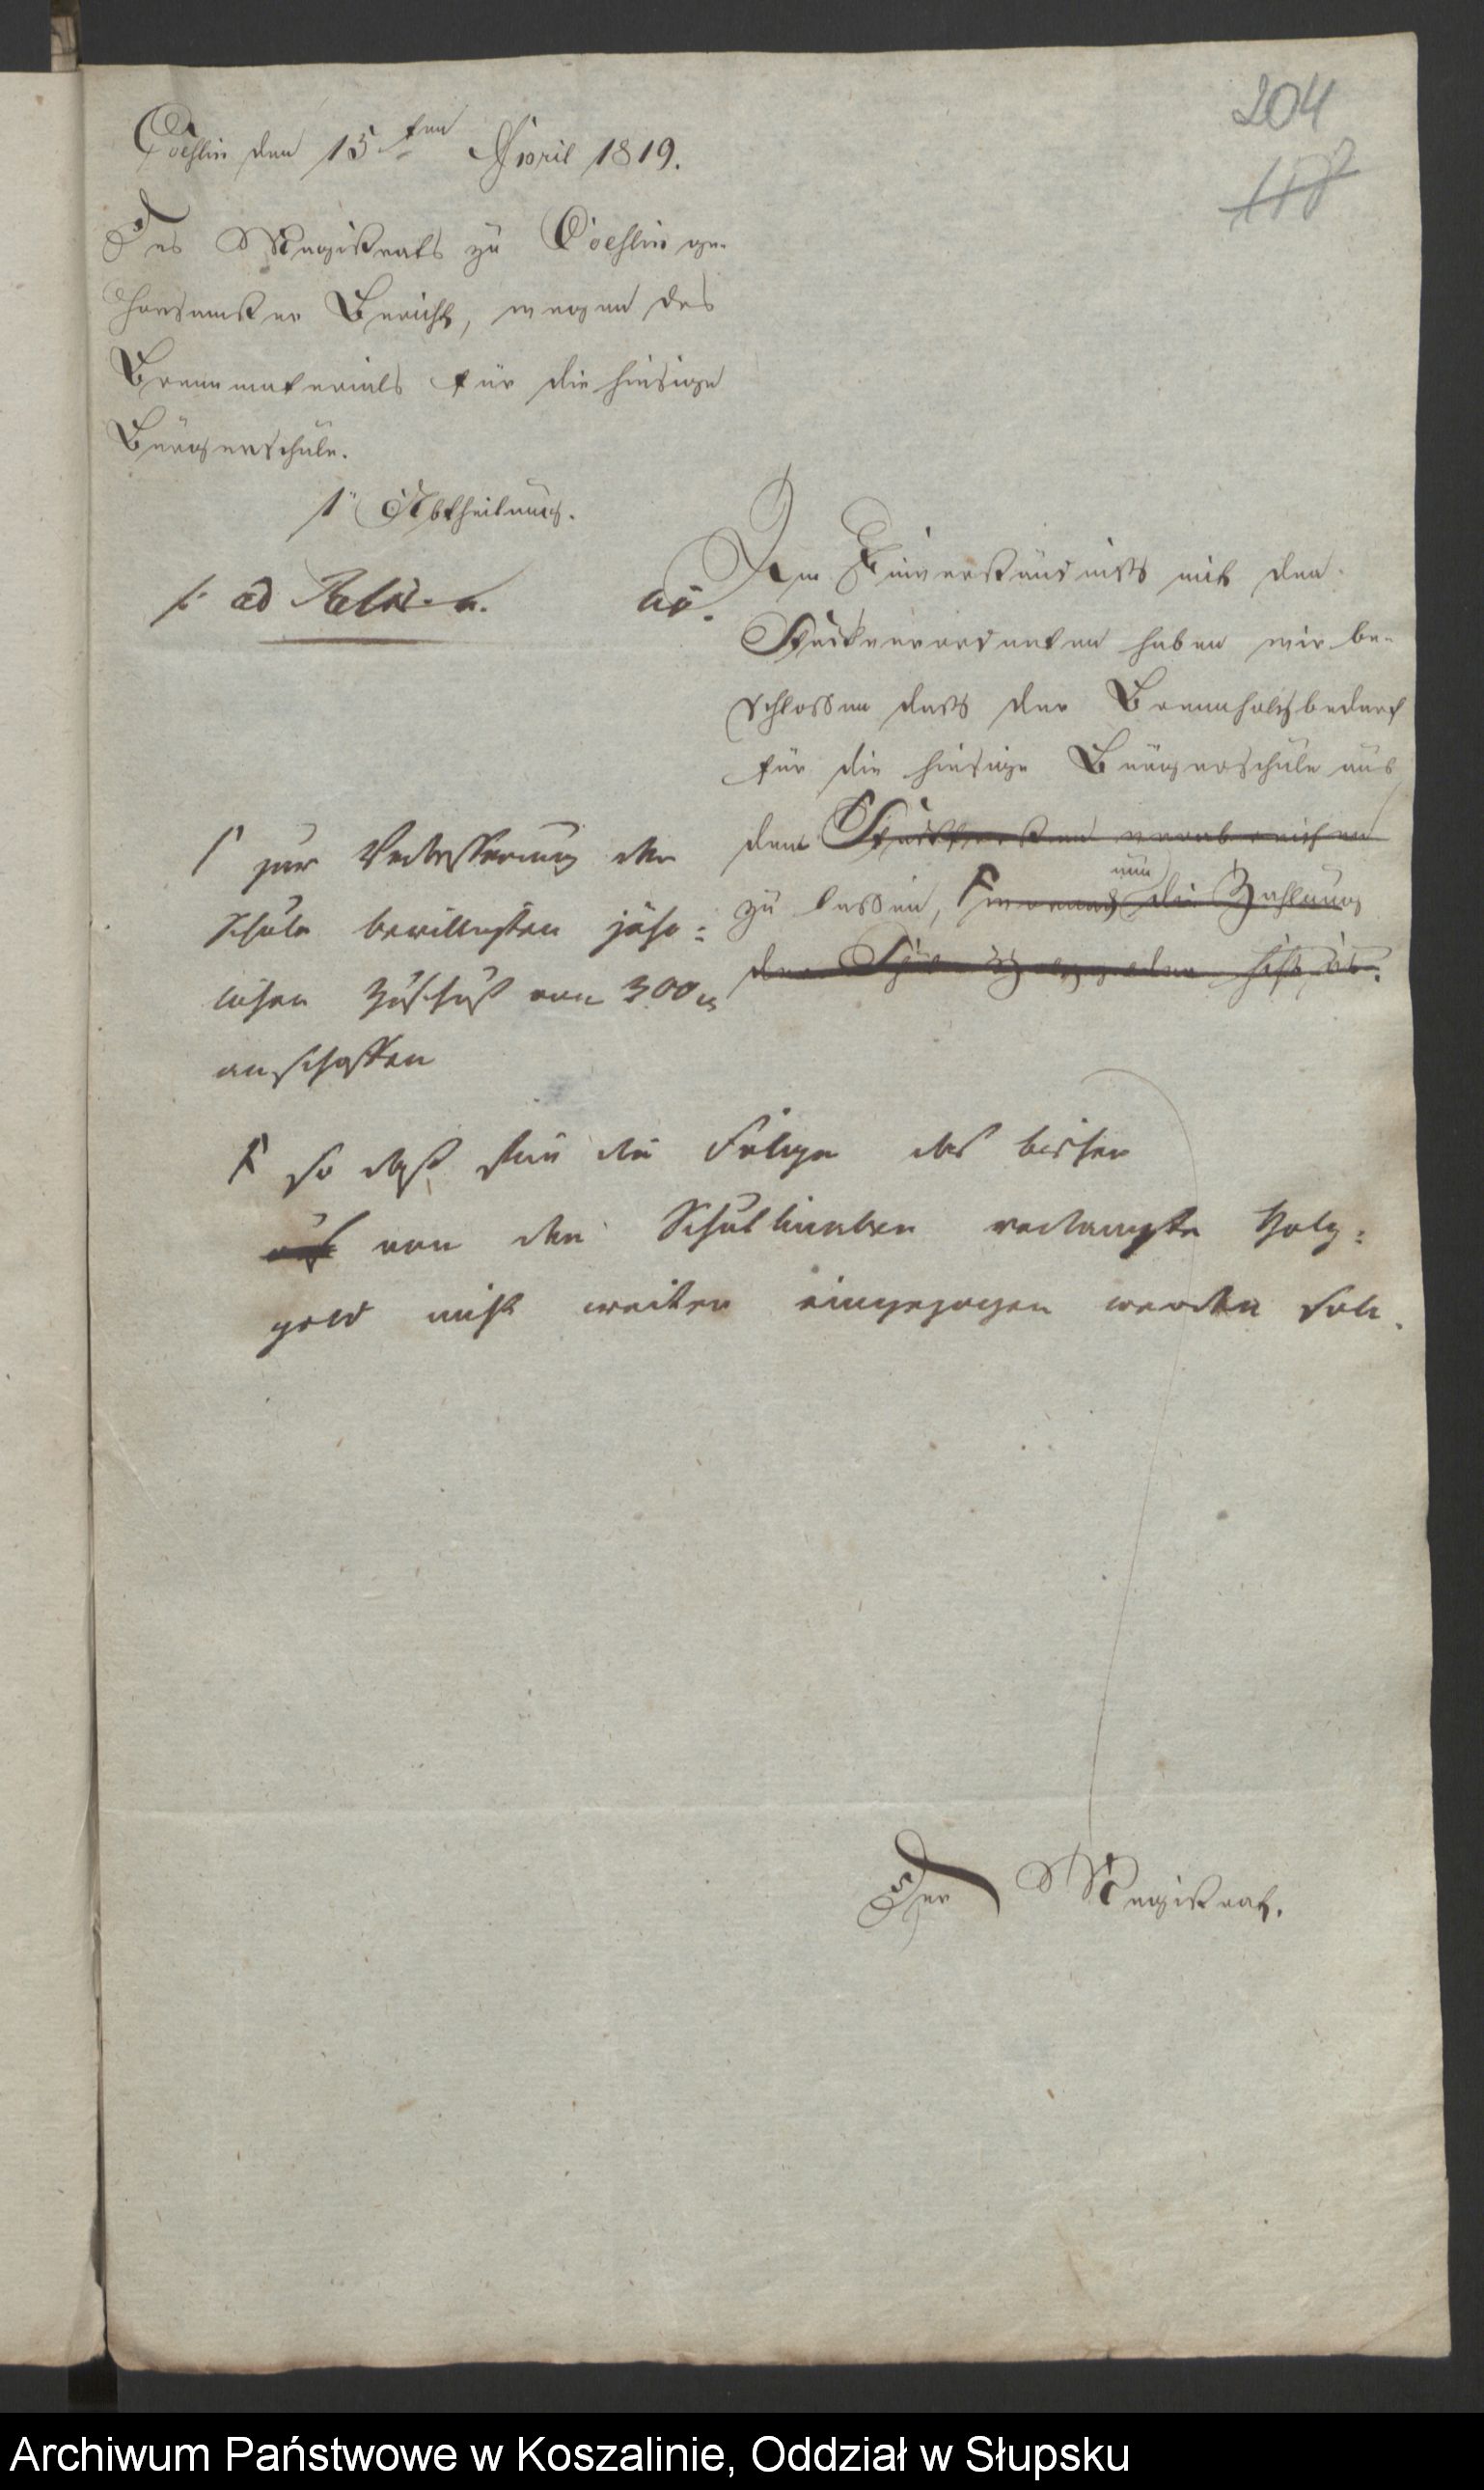 204
Coeslin den 15ten April 1819.
Des Magistrats zu Coeslin ge-
horsamster Bericht, wegen des
Brennmaterials für die hiesige
Bürgerschule.
1" Abtheilung.
ad
Im Einverständniss mit den
Stadtverordneten haben wir be-
schlossen dass der Brennholzbedarf
für die hiesige Bürgerschule aus
dem Stadtforsten verabreichen
zu lassen, wonach nun die Zahlung
der Holzgelder
Γ zur Verbesserung der
Schule bewilligten jähr=
lichen Zuschuß von 300
anschaffen
F so daß für die Folge das bisher
von den Schulkindern verlangte Holz=
geld nicht weiter eingezogen werden soll.
Der Magistrat.
Archiwum Państwowe w Koszalinie, Oddział w Słupsku